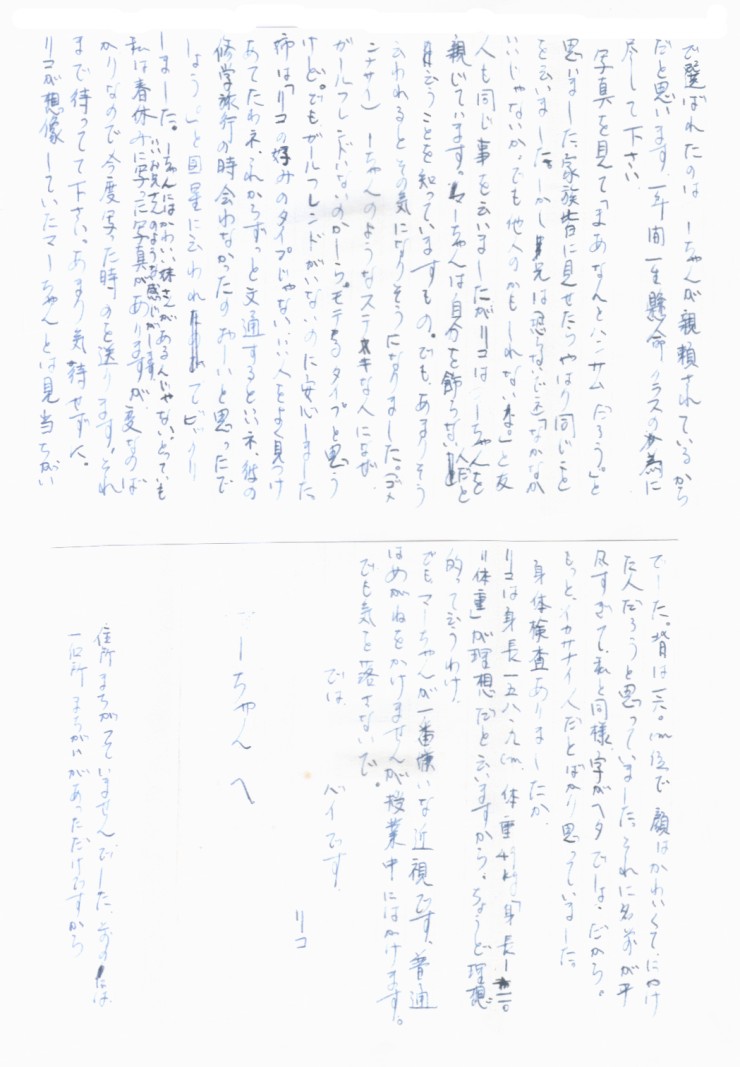 で選ばれたのは ーちゃんが親頼されているから
だと思います。一年間一生懸命クラスの為に
尽して下さい。
写真を見て「まあなんとハンサムだろう。」と
思いました。家族皆に見せたらやはり同じこと
を云いました。しかし兄は恐らないで还「なかなか
いいじゃないか。でも他人のかもしれないな。」と友
人も同じ事を云いましたがリコはーちゃんを
親じています。マーちゃんは自分を飾らない人だと
云うことを知っていますもの。でも、あまりそう
云われるとその気になりそうになりました。(ゴメ
ンナサイ) ーちゃんのようなステキな人になぜ
ガールフレンドいないのかしら。モテるタイプと思う
けど。でもガールフレンドがいないのに安心しました
姉は「リコの好みのタイプじゃない、いい人をよく見つけ
あてたわネ、これからずっと文通するといいネ、彼の
修学旅行の時会わなかったのおしいと思ったで
しょう。」と図星に云われてビックリ
しました。ーちゃんにはかわいい妹さんがあるんじゃない。とっても
いいお兄さんのような感じがします。
私は春休みに写った写真がありますが、変なのば
かりなので今度写った時のを送ります。それ
まで待ってて下さい。あまり気待せずに。
リコが想像していたマーちゃんとは見当ちがい
でした。背は一六〇cm位で顔はかわいくて、にやけ
た人だろうと思っていました。それに名前が平
凡すぎて、私と同様字がヘタでしょ。だから。
もっと、イカサナイ人だとばかり思っていました。
身体検査ありましたか。
リコは身長一五八・九cm、体重49kg「身長ー一一〇
=体重」が理想だと云いますから、ちょうど理想
的って云うわけ。
でもマーちゃんが一番嫌いな近視です。普通
はめがねをかけませんが授業中にはかけます。
でも気を落さないで。
では バイです。
リコ
ーちゃんへ
住所まちがっていませんでした。前のは
一ヶ所まちがいがあっただけですから